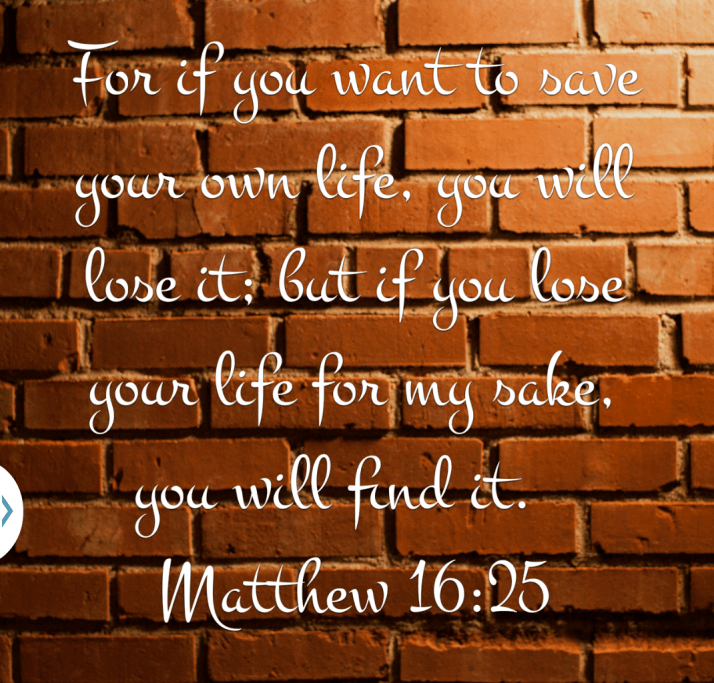 For if you want to save
your own life, you will
lose it; but if you lose
your life for my sake,
you will find it.
Matthew 16:25